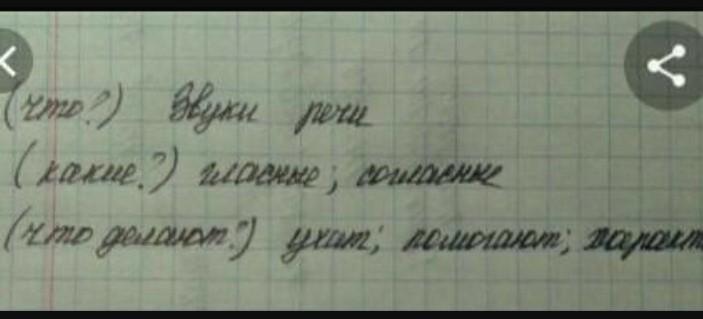 (что?) Звуки речи
(какие?) гласные; согласные
(что делают?) ухат; помогают; характ